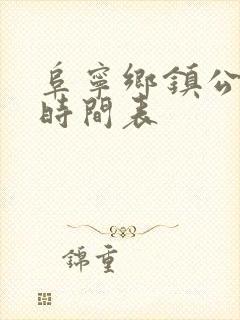 阜寧鄉鎮公
時間表
錦重